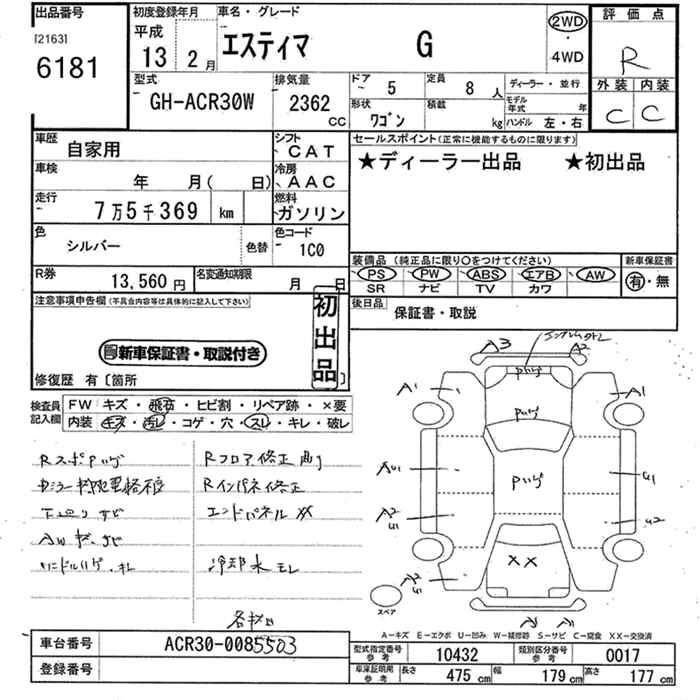 出品番号
[2163]
6181
初度登録年月
平成
13 2 月
車名・グレード
エスティマ G
2WD
・
4WD
評価点
R
外装 内装
C C
型式
GH-ACR30W
排気量
2362
CC
ドア
5
定員
8 人
ディーラー・並行
形状
ワゴン
積載
kg
モデル年式 年
ハンドル 左・右
車歴
自家用
シフト
CAT
車検
年 月( 日)
冷房
AAC
走行
7万5千369 km
燃料
ガソリン
色
シルバー
色替
色コード
1C0
R券
13,560 円
名変通知期限
月 日
セールスポイント(正常に機能するものに限ります)
★ディーラー出品 ★初出品
装備品(純正品に限り○をつけてください)
PS PW ABS エアB AW
SR ナビ TV カワ
新車保証書
有・無
後日品
保証書・取説
注意事項申告欄(不具合内容等は具体的に記入して下さい)
初出品
新車保証書・取説付き
修復歴 有〔箇所 〕
検査員記入欄
FW キズ・飛石・ヒビ割・リペア跡・×要
内装 キズ・汚レ・コゲ・穴・スレ・キレ・破レ
Rフロア修正
Rインパネ修正
エンドパネルXX
冷却水モレ
A3
A2
A1
A1
AU1
U1
A2
U1
U2
XX
スペア
A-キズ E-エクボ U-凹み W-補修跡 S-サビ C-腐食 XX-交換済
車台番号
ACR30-0085503
登録番号
型式指定番号
参考
10432
類別区分番号
参考
0017
車庫証明用
参考
長さ
475 cm
幅
179 cm
高さ
177 cm